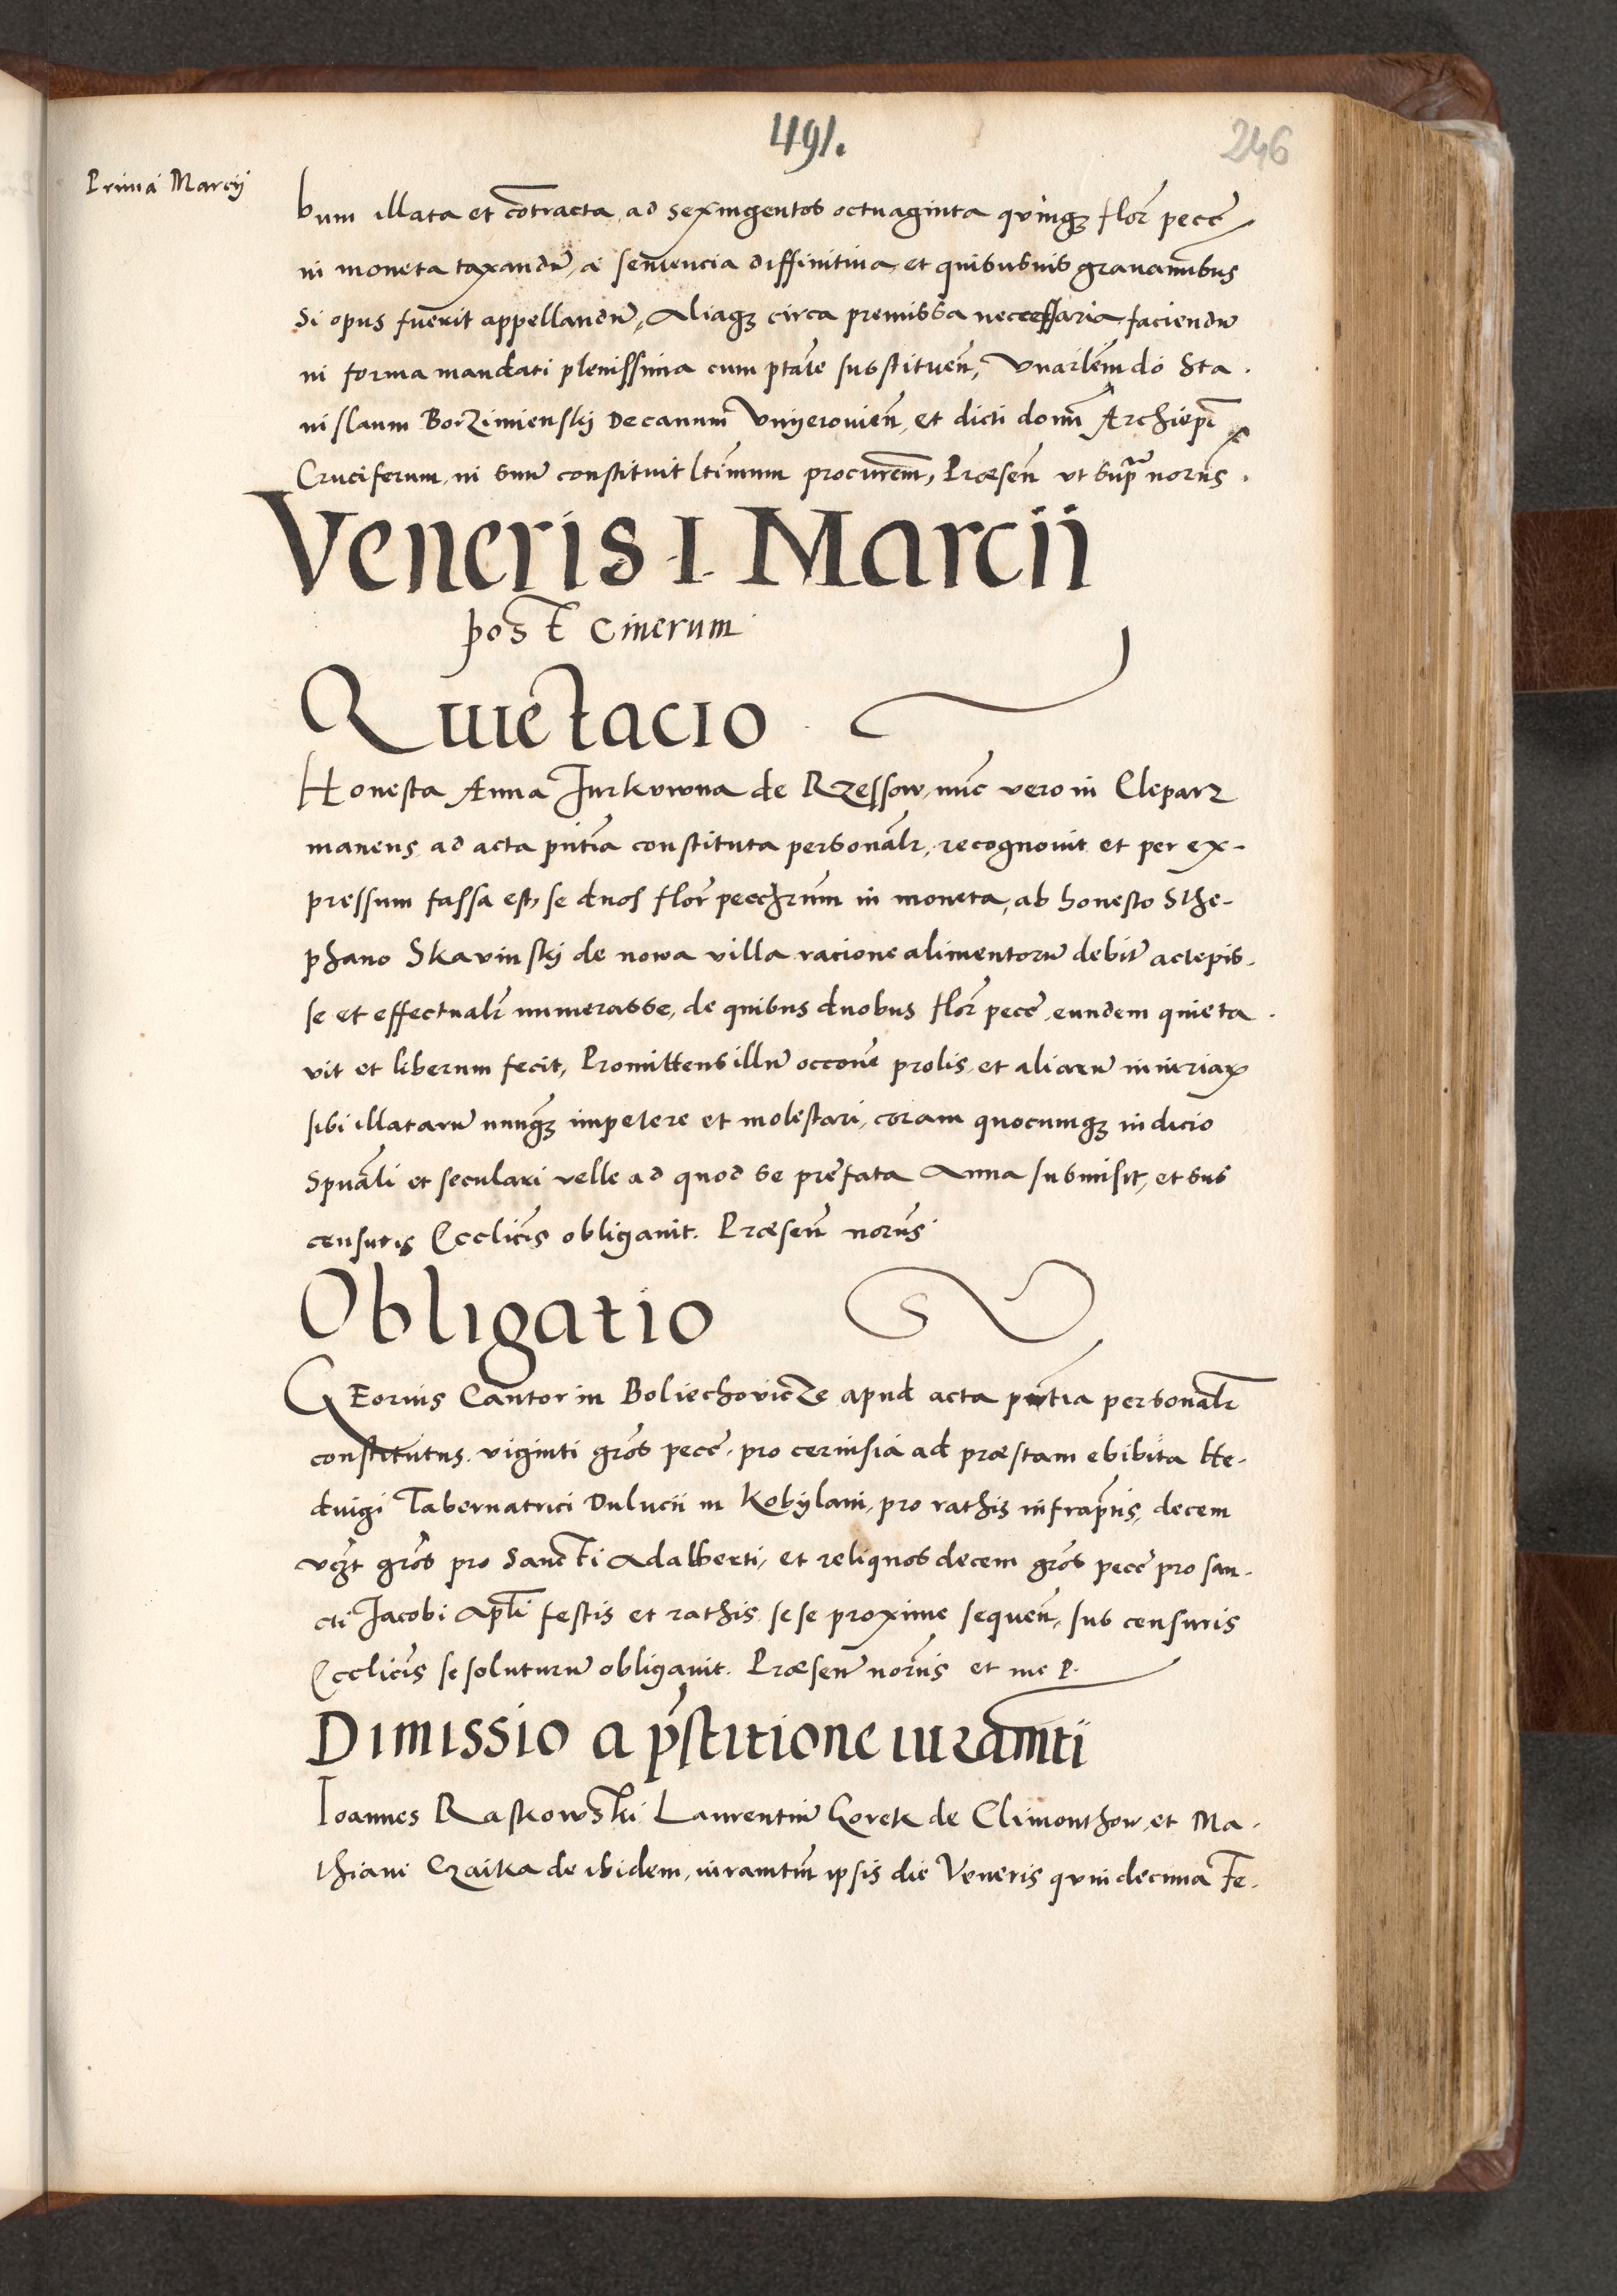 491.
246
Prima Marcij
bum illata et cōtracta, ad sexingentos octuaginta quinqȝ flor̄ pecc̄
in moneta taxandū, a sentencia diffinitiua, et quibusuis grauamībus
si opus fuerit appellandū, Aliaqȝ circa premissa neccessaria faciendū
in forma mandati plenissima cum ptāte substituen̄,
nislaum Borzimienski Decanum Vnijerouien̄, et dicti domī Archiepī
Cruciferum, in sunt constituit ltīmum procurem̄, Præsen̄ ut supra norūs.
Veneris .1. Marcii
post Cinerum
Quietacio
Honesta Anna Jurkowna de Rzessow, nūc vero in Cleparz
manens, ad acta pn̄tia constituta personalr̄, recognouit et per ex-
pressum fassa est, se duos flor̄ pecchrūm in moneta, ab honesto Sthe-
phano Skavinskj de nowa villa racione alimentorū debitē accepis-
se et effectualr̄ numerasse, de quibus duobus flor̄ pecc̄, eundem quieta
vit et liberum fecit, Promittens illū occone prolis, et aliarū iniuriarꝝ
sibi illatarū nunqȝ impetere et molestari, coram quocumqȝ iudicio
Spuāli et seculari velle ad quod se prefata Anna submisit, et sub
censuris Ecclic̄is obligauit. Præsen̄ norūs
Obligatio
GEorius Cantor in Boliechovicze apud acta pn̄tia personalr̄
constitutus, viginti gros̄ pecc̄, pro ceruisia ad præstam ebibita He-
duigi Tabernatrici Dulucii in Kobylani, pro rathis infrap̄tis, decem
vcȝt gros̄ pro Sancti Adalberti, et reliquos decem gros̄ pecc̄ pro san-
cti Jacobi Apl̄i festis et rathis sese proxime sequen̄, sub censuris
Ecclic̄is se soluturū obligauit. Præsen̄ norūs et me P.
Dimissio a p̄stitione iuramti
Ioannes Raskowski Laurentiū Gorek de Climonthow, et Ma-
thiam Czaika de ibidem, iuramtm̄ ipsis die Veneris quindecima Fe-